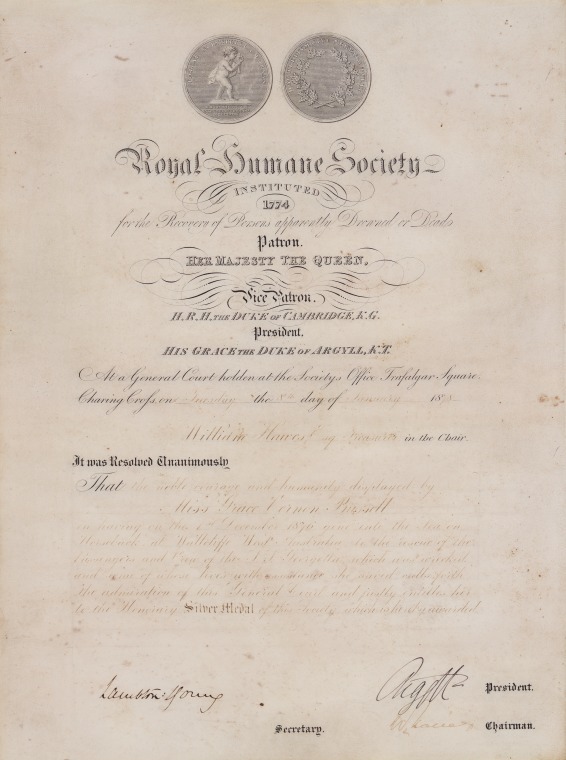 Royal Humane Society
INSTITUTED
1774
for the Recovery of Persons apparently Drowned or Dead
Patron.
HER MAJESTY THE QUEEN,
Vice Patron.
H.R.H, THE DUKE OF CAMBRIDGE, K.G.
President.
HIS GRACE THE DUKE OF ARGYLL, K.T.
At a General Court holden at the Societys Office Trafalgar Square.
Charing Cross, on Tuesday the 8th day of January 1878
William Hawes Esq Treasurer in the Chair.
It was Resolved Unanimously
That the noble courage and humanity displayed by
Miss Grace Vernon Bussell
in having on the December 1876 gone into the Sea on
Horseback at Wallcliffe West Australia to the rescue of the
Passengers and Crew of the S.S. Georgette, which was wrecked
and some of whose lives with assistance she saved calls forth
the admiration of this General Court and justly entitles her
to the Honorary Silver Medal of this Society which is hereby awarded
Lambton Young
Argyll
President.
Secretary.
Chairman.